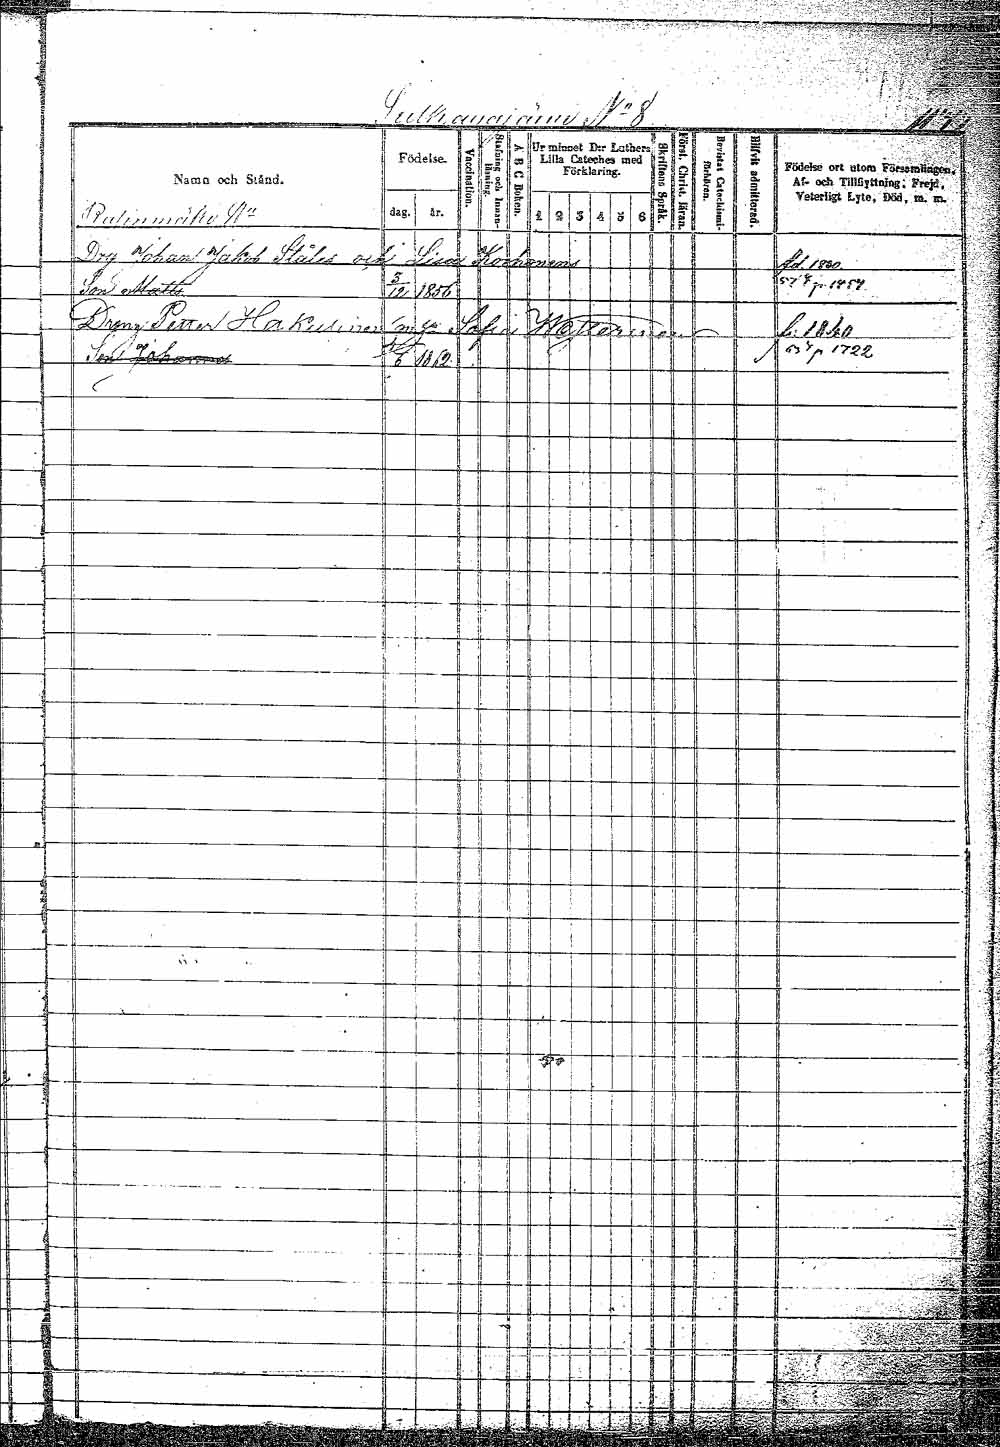 Sulkavanjärvi N° 8
Namn och Stånd.
Födelse.
dag.
år.
Vaccination.
Stafning och Innan-
läsning.
A B C Boken.
Ur minnet D:r Luthers
Lilla Cateches med
Förklaring.
1 2 3 4 5 6
Skriftens Språk.
Förkl. Christ. läran.
Bevistat Catechismi-
förhören.
Blifvit admitterad.
Födelse ort utom Församlingen,
Af- och Tillflyttning; Frejd,
Veterligt Lyte, Död, m. m.
N°
Johan Jakob Ståles och Lisa Korhonens fd. 1860
Son Matts 5/12 1856 p 1454
Petter Hakulinen Sofia
Son Johannes 1862 p 1722